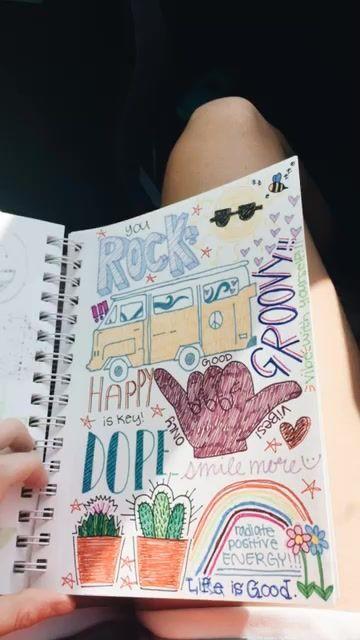 you
ROCK
!!!
GROOVY!!!
HAPPY
is key!
GOOD
VIBES!
ONLY
DOPE
smile more
radiate
positive
ENERGY!!!
Life is Good.